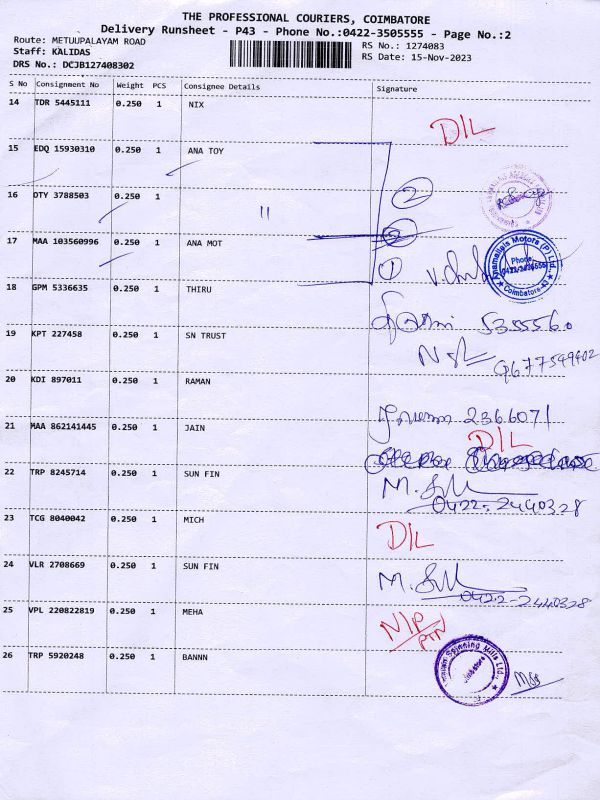 THE PROFESSIONAL COURIERS, COIMBATORE
Delivery Runsheet - P43 - Phone No.:0422-3505555 - Page No.:2
Route: METUUPALAYAM ROAD
Staff: KALIDAS
DRS No.: DCJB127408302
RS No.: 1274083
RS Date: 15-Nov-2023
S No Consignment No Weight PCS Consignee Details Signature
14 TDR 5445111 0.250 1 NIX
D/L
15 EDQ 15930310 0.250 1 ANA TOY
16 OTY 3788503 0.250 1 11
2
17 MAA 103560996 0.250 1 ANA MOT
1
Anamallais Motors (P) Ltd.,
Phone
0422-2436556
Coimbatore-43
18 GPM 5336635 0.250 1 THIRU
535556.0
19 KPT 227458 0.250 1 SN TRUST
9677599902
20 KDI 897011 0.250 1 RAMAN
2366071
21 MAA 862141445 0.250 1 JAIN
D/L
22 TRP 8245714 0.250 1 SUN FIN
0422-2440328
23 TCG 8040042 0.250 1 MICH
D/L
24 VLR 2708669 0.250 1 SUN FIN
0422-2440328
25 VPL 220822819 0.250 1 MEHA
N/P
PTN
26 TRP 5920248 0.250 1 BANNN
Spinning Mills Ltd.,